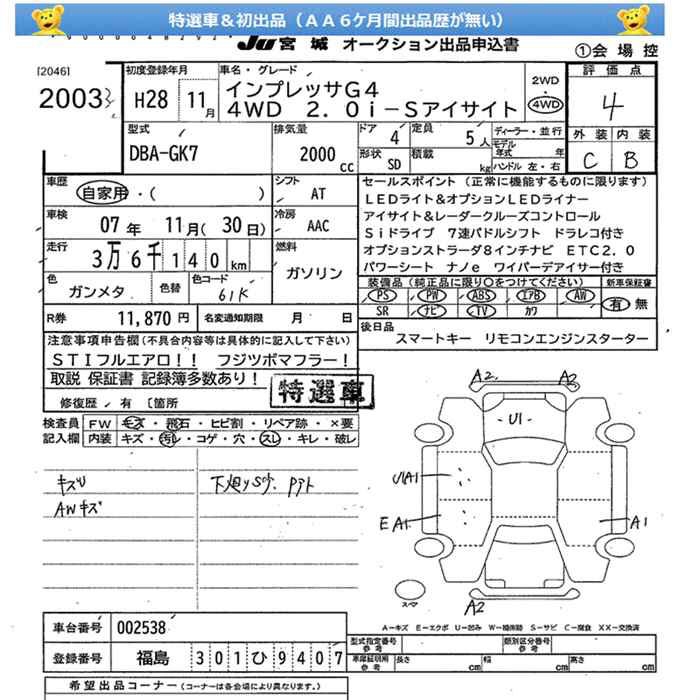 特選車＆初出品（ＡＡ６ケ月間出品歴が無い）
JU宮城 オークション出品申込書
①会場控
[2046]
2003
初度登録年月
H28 11月
車名・グレード
インプレッサＧ４
４ＷＤ ２．０ｉ－Ｓアイサイト
2WD
・
4WD
評価点
4
外装 内装
C B
型式
DBA-GK7
排気量
2000 cc
ドア 4
定員 5人
形状 SD
積載 kg
ディーラー・並行
モデル年式 年
ハンドル 左・右
車歴
自家用・( )
シフト
AT
車検
07年 11月(30日)
冷房
AAC
走行
3万6千140km
燃料
ガソリン
色
ガンメタ
色替
色コード
61K
R券 11,870円
名変通知期限 月 日
セールスポイント（正常に機能するものに限ります）
ＬＥＤライト＆オプションＬＥＤライナー
アイサイト＆レーダークルーズコントロール
Ｓｉドライブ ７速パドルシフト ドラレコ付き
オプションストラーダ８インチナビ ＥＴＣ２．０
パワーシート ナノｅ ワイパーデアイサー付き
装備品（純正品に限り〇をつけてください）
新車保証書
PS PW ABS エアB AW
SR ナビ TV カワ
有 無
後日品
スマートキー リモコンエンジンスターター
注意事項申告欄(不具合内容等は具体的に記入して下さい)
ＳＴＩフルエアロ！！ フジツボマフラー！
取説 保証書 記録簿多数あり！
特選車
修復歴・有〔箇所
検査員記入欄
FW キズ・飛石・ヒビ割・リペア跡・×要
内装 キズ・汚れ・コゲ・穴・スレ・キレ・破レ
キズリ
AWキズ
A2 A2
U1
U1A1
E A1
A1
A2
スペア
A－キズ E－エクボ U－凹み W－補修跡 S－サビ C－腐食 XX－交換済
車台番号 002538
登録番号 福島 301ひ9407
型式指定番号 参考
類別区分番号 参考
車庫証明用 参考
長さ cm
幅 cm
高さ cm
希望出品コーナー(コーナーは各会場により異なります。)